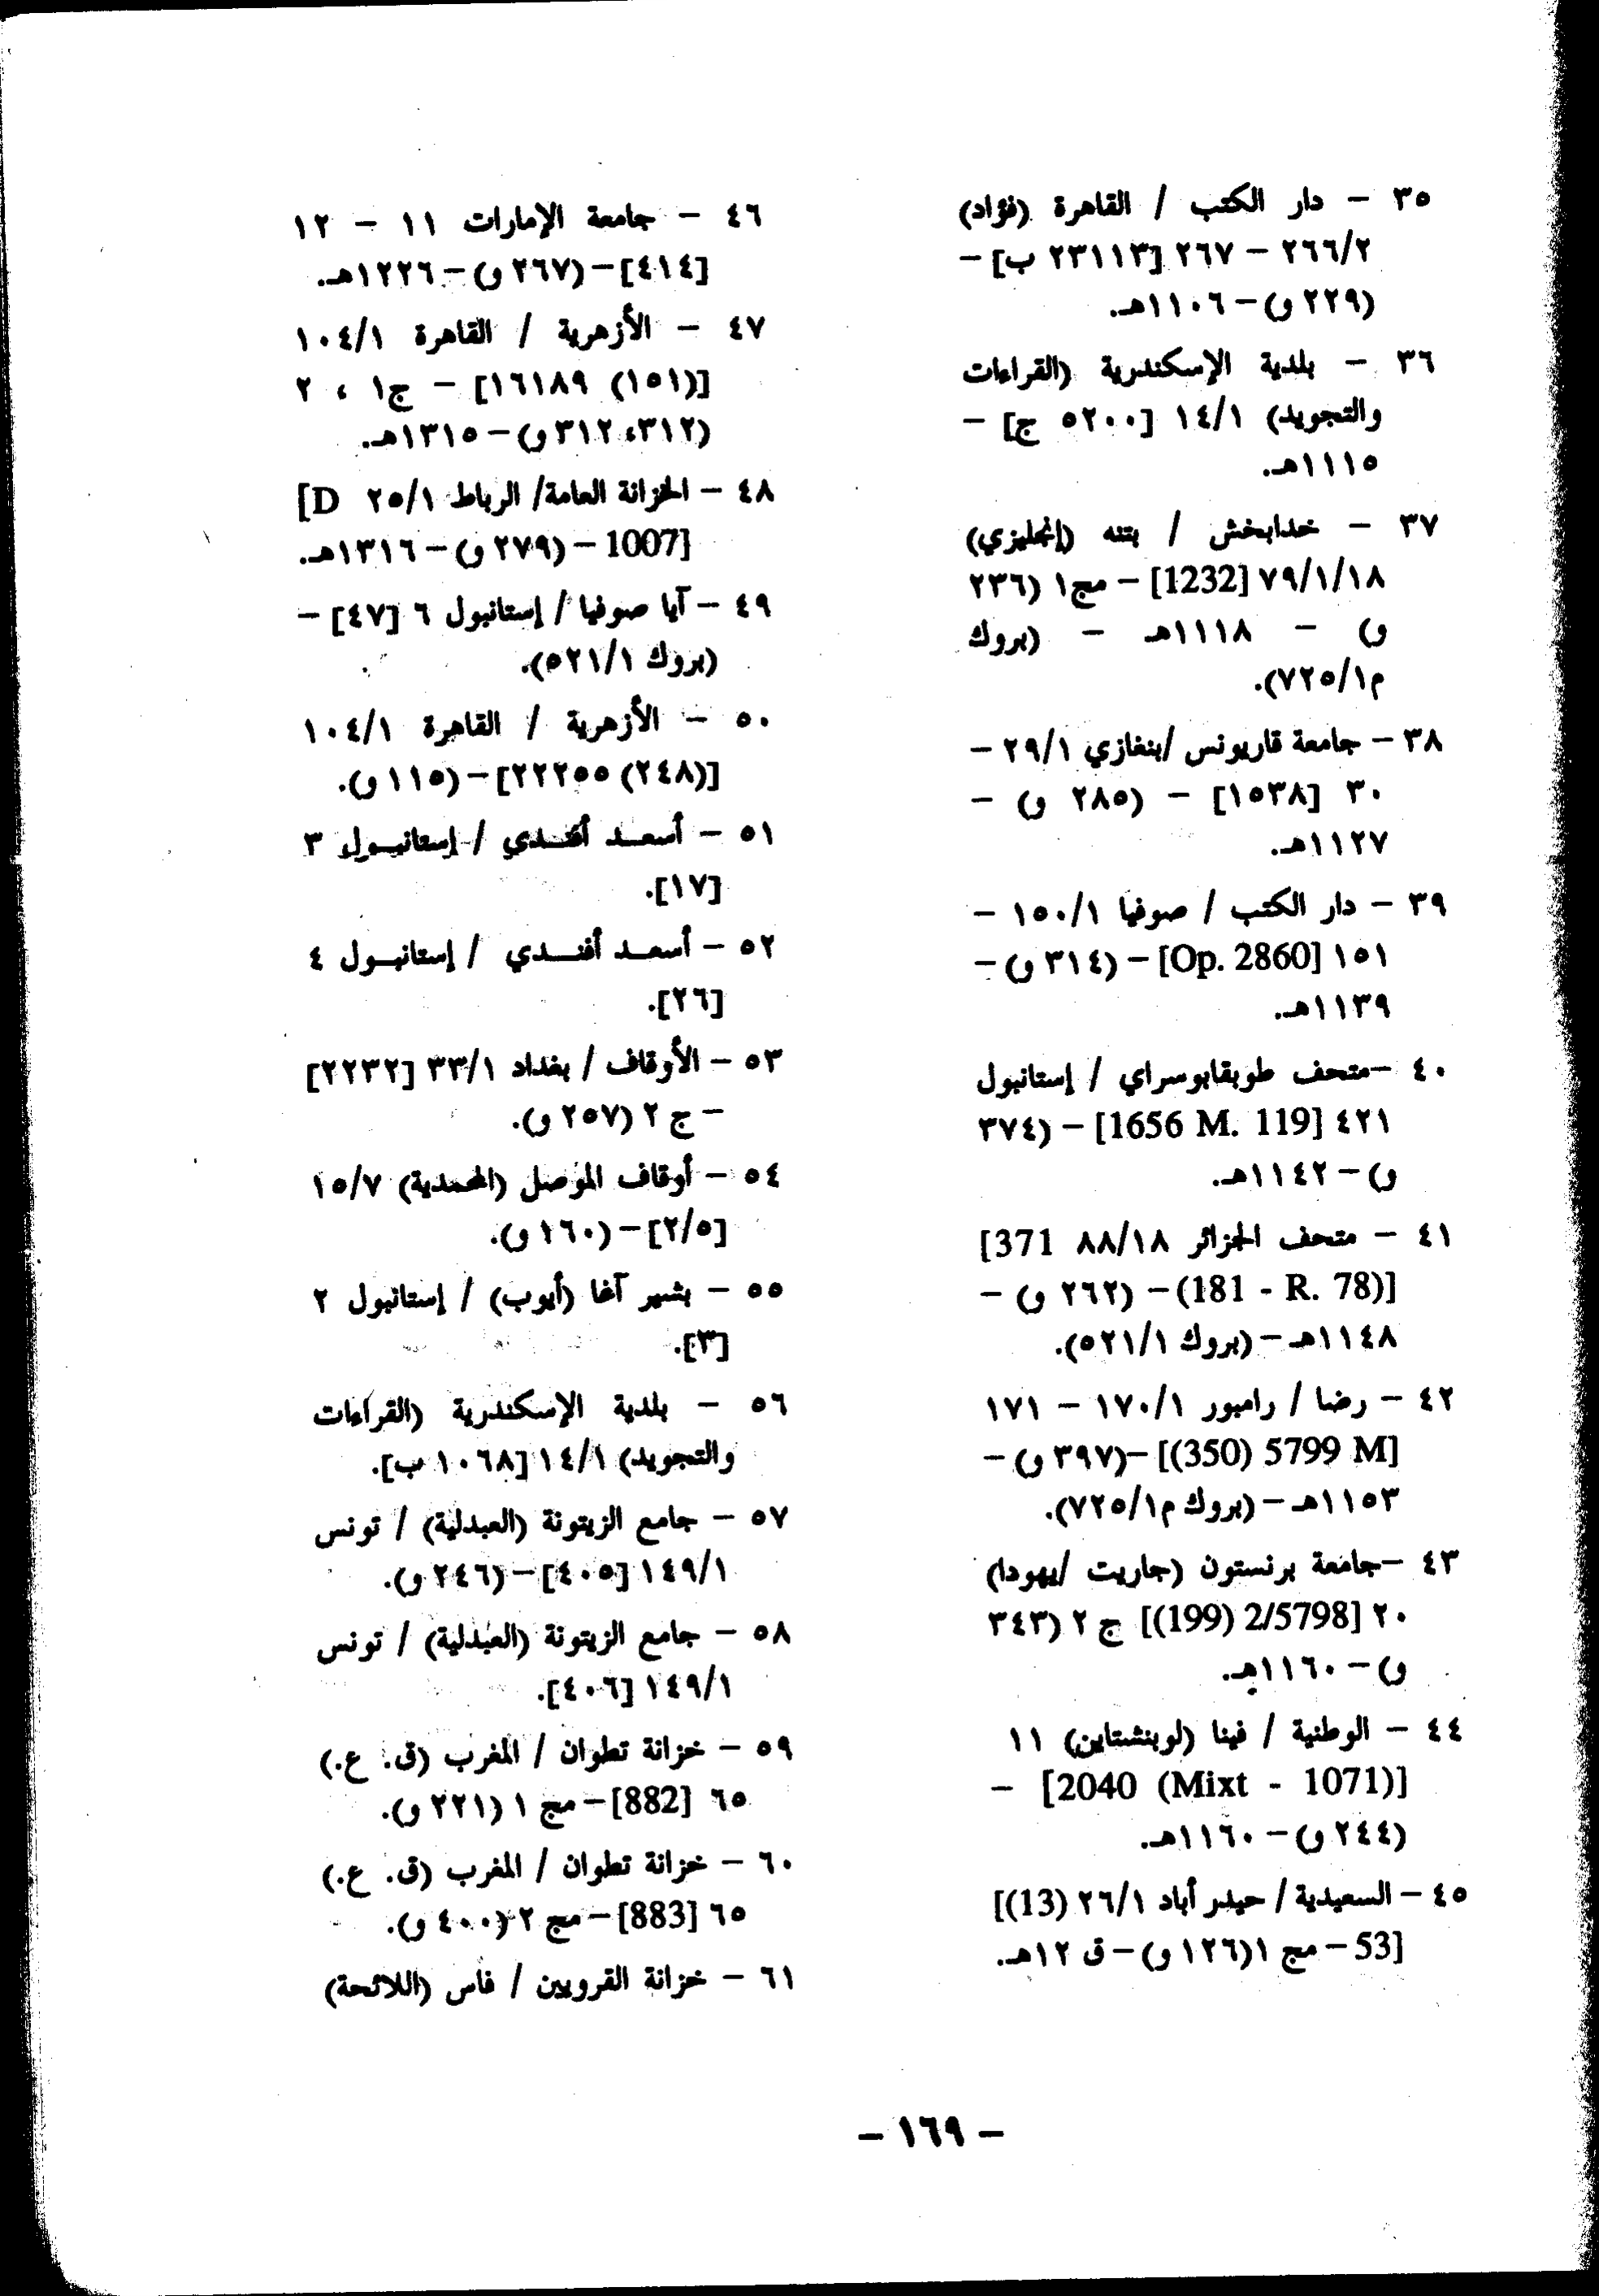 ٣٥ - دار الكتب / القاهرة (فؤاد)
٢٦٦/٢ - ٢٦٧ [٢٣١١٣ ب] -
(٢٢٩ و) - ١١٠٦هـ.
٣٦ - بلدية الإسكندرية (القراءات
والتجويد) ١٤/١ [٥٢٠٠ ج] -
١١١٥هـ.
٣٧ - خدابخش / بتنه (إنجليزي)
٧٩/١/١٨ [1232] - مج١ (٢٣٦
و) - ١١١٨هـ - (بروك
م٧٢٥/١).
٣٨ - جامعة قاريونس /بنغازي ٢٩/١ -
٣٠ [١٥٣٨] - (٢٨٥ و) -
١١٢٧هـ.
٣٩ - دار الكتب / صوفيا ١٥٠/١ -
١٥١ [Op. 2860] - (٣١٤ و) -
١١٣٩هـ.
٤٠ -متحف طوبقابوسراي / إستانبول
٤٢١ [1656 M. 119] - (٣٧٤
و) - ١١٤٢هـ.
٤١ - متحف الجزائر ٨٨/١٨ [371
(181 - R. 78)] - (٢٦٢ و) -
١١٤٨هـ - (بروك ٥٢١/١).
٤٢ - رضا / رامبور ١٧٠/١ - ١٧١
[(350) 5799 M] -(٣٩٧ و) -
١١٥٣هـ - (بروك م٧٢٥/١).
٤٣ -جامعة برنستون (جاريت /يهودا)
٢٠ [(199) 2/5798] ج ٢ (٣٤٣
و) - ١١٦٠هـ.
٤٤ - الوطنية / فينا (لوبنشتاين) ١١
[2040 (Mixt - 1071)] -
(٢٤٤ و) - ١١٦٠هـ.
٤٥ - السعيدية / حيدر أباد ٢٦/١ [(13)
53] - مج ١(١٢٦ و) - ق ١٢هـ.
٤٦ - جامعة الإمارات ١١ - ١٢
[٤١٤] - (٢٦٧ و) - ١٢٢٦هـ.
٤٧ - الأزهرية / القاهرة ١٠٤/١
[(١٥١) ١٦١٨٩] - ج١ ، ٢
(٣١٢، ٣١٢ و) - ١٣١٥هـ.
٤٨ - الخزانة العامة/ الرباط ٢٥/١ [D
1007] - (٢٧٩ و) - ١٣١٦هـ.
٤٩ - آيا صوفيا / إستانبول ٦ [٤٧] -
(بروك ٥٢١/١).
٥٠ - الأزهرية / القاهرة ١٠٤/١
[(٢٤٨) ٢٢٢٥٥] - (١١٥ و).
٥١ - أسعد أفندي / إستانبول ٣
[١٧].
٥٢ - أسعد أفندي / إستانبول ٤
[٢٦].
٥٣ - الأوقاف / بغداد ٣٣/١ [٢٢٣٢]
- ج ٢ (٢٥٧ و).
٥٤ - أوقاف الموصل (المحمدية) ١٥/٧
[٢/٥] - (١٦٠ و).
٥٥ - بشير آغا (أيوب) / إستانبول ٢
[٣].
٥٦ - بلدية الإسكندرية (القراءات
والتجويد) ١٤/١ [١٠٦٨ ب].
٥٧ - جامع الزيتونة (العبدلية) / تونس
١٤٩/١ [٤٠٥] - (٢٤٦ و).
٥٨ - جامع الزيتونة (العبدلية) / تونس
١٤٩/١ [٤٠٦].
٥٩ - خزانة تطوان / المغرب (ق. ع.)
٦٥ [882] - مج ١ (٢٢١ و).
٦٠ - خزانة تطوان / المغرب (ق. ع.)
٦٥ [883] - مج ٢ (٤٠٠ و).
٦١ - خزانة القرويين / فاس (اللائحة)
- ١٦٩ -